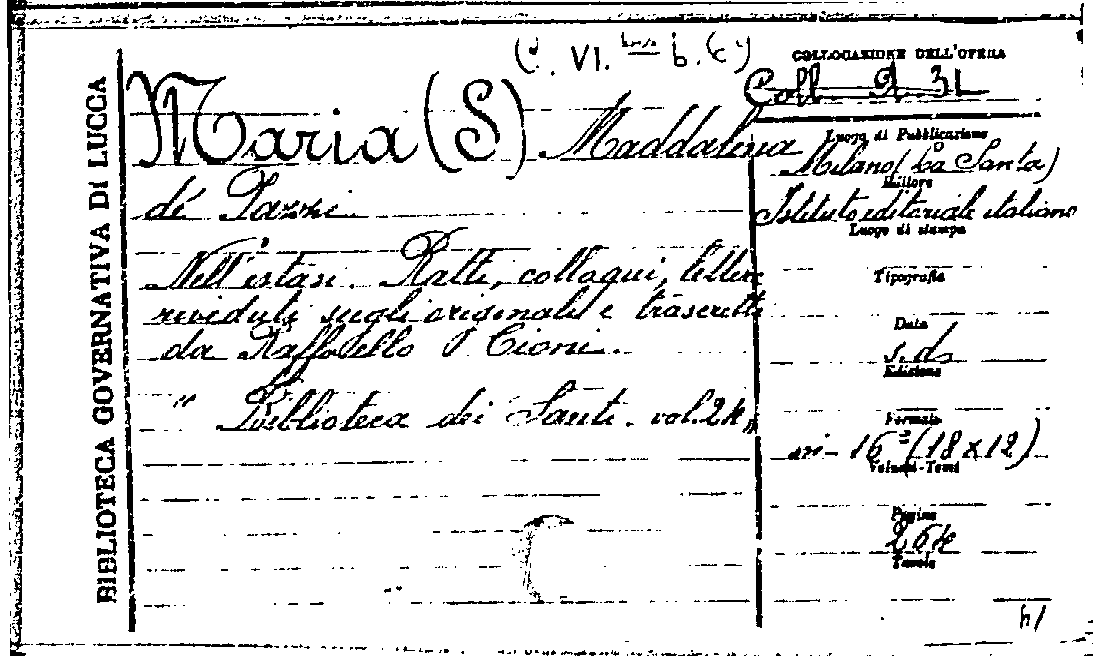 BIBLIOTECA GOVERNATIVA DI LUCCA
(C. VI. b. c)
COLLOCAZIONE DELL'OPERA
Coll. 9 31
Maria (S) Maddalena
dé Pazzi
Nell'estasi. Ratti, colloqui, lettere
riveduti sugli originali e trascritti
da Raffaello Cioni.
" Biblioteca dei Santi. vol. 24"
Luogo di Pubblicazione
Milano (La Santa)
Editore
Istituto editoriale italiano
Luogo di stampa
Tipografia
Data
s. d.
Edizione
Formato
in-16° (18x12)
Volumi-Tomi
Pagine
264
Tavole